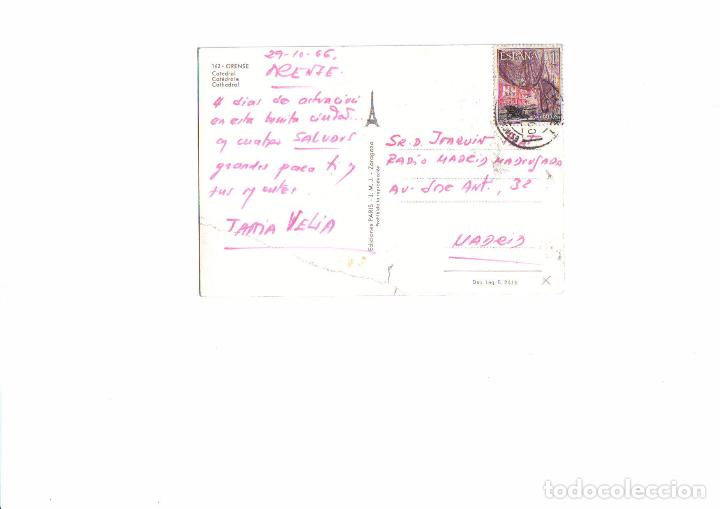 162 - ORENSE
Catedral
Catédrale
Cathedral
29-10-66,
ORENSE.
4 dias de actuación
en esta bonita ciudad...
y cuatro SALUDOS
grandes para ti y
tus oyentes.
TANIA VELIA
Ediciones PARIS - J. M. J. - Zaragoza
Prohibida la reproducción
ESPAÑA 1
SR. D. JOAQUIN
RADIO MADRID MADRUGADA
AV. JOSE ANT., 32
MADRID
Dep. Leg. B. 2616
X
todocoleccion.net